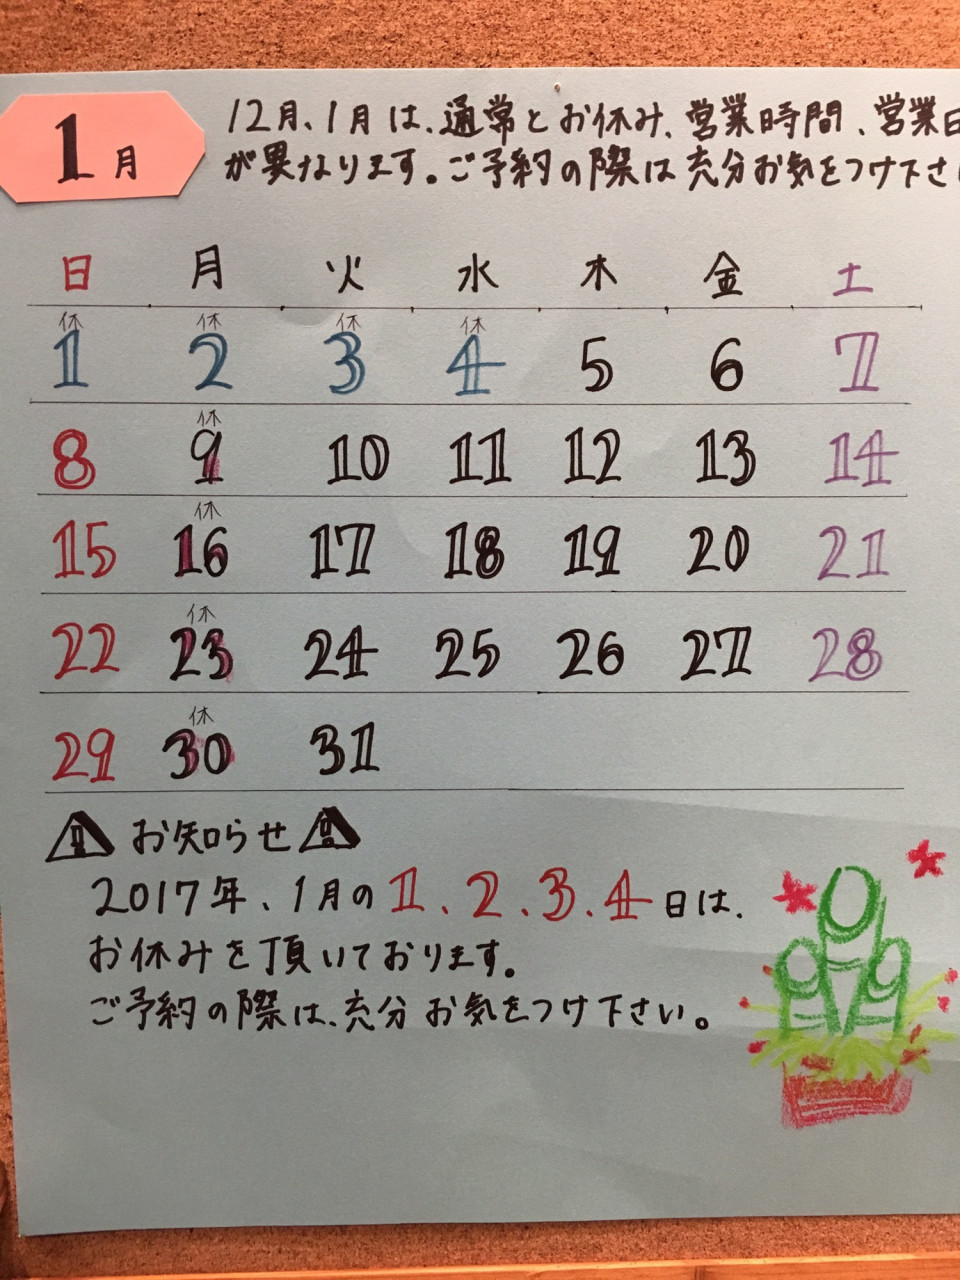 1月
12月、1月は、通常とお休み、営業時間、営業日
が異なります。ご予約の際は充分お気をつけ下さ
日 月 火 水 木 金 土
休 休 休 休
1 2 3 4 5 6 7
休
8 9 10 11 12 13 14
休
15 16 17 18 19 20 21
休
22 23 24 25 26 27 28
休
29 30 31
お知らせ
2017年、1月の1、2、3、4日は、
お休みを頂いております。
ご予約の際は、充分お気をつけ下さい。